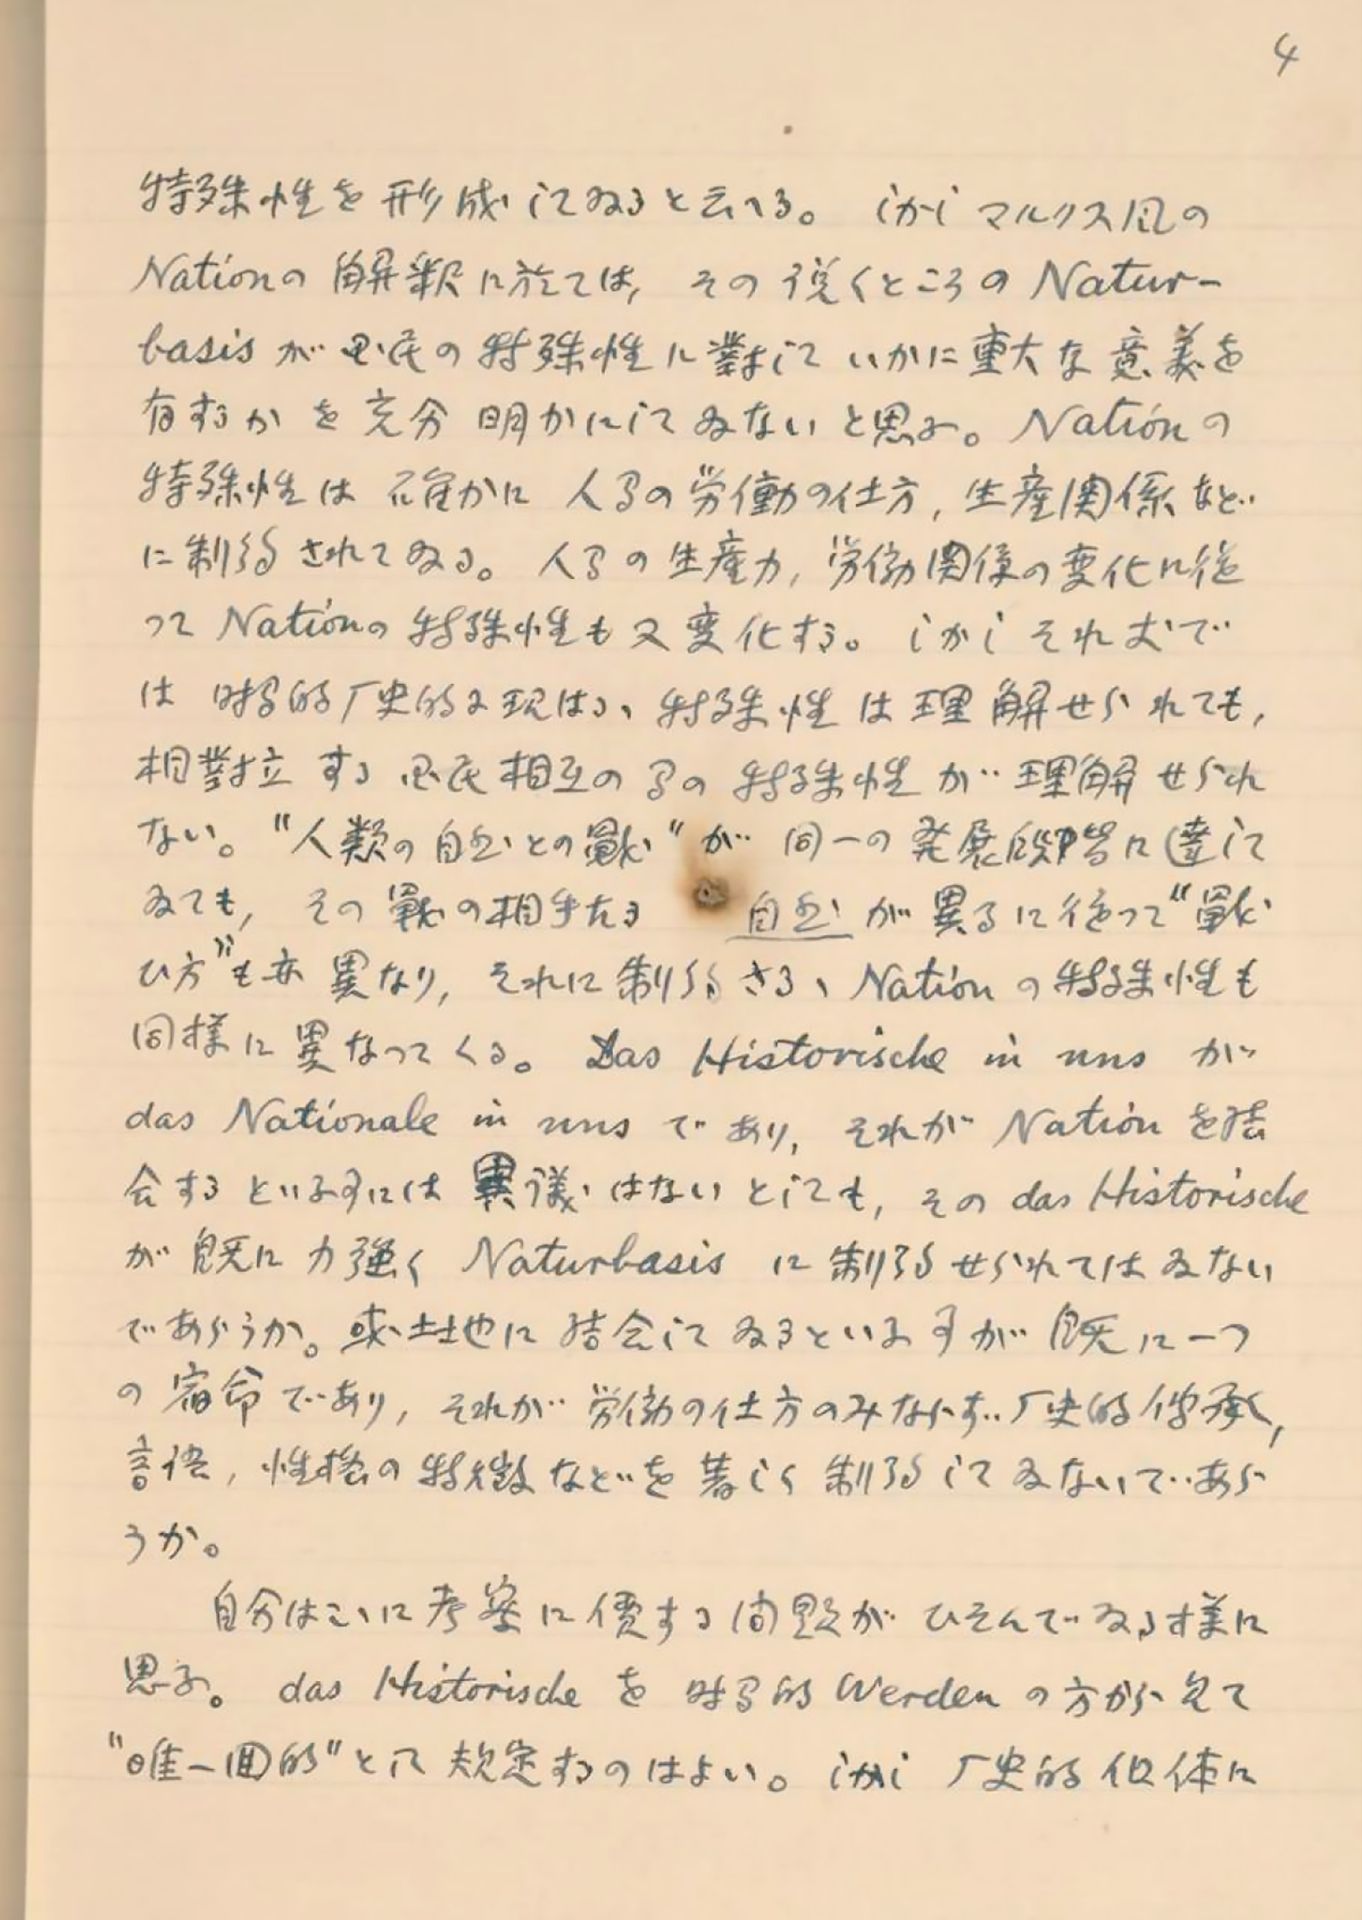 4
特殊性を形成してゐると云へる。しかしマルクス風の
Nationの解釈に於ては，その説くところのNatur-
basisが国民の特殊性に對していかに重大な意義を
有するかを充分明かにしてゐないと思ふ。Nationの
特殊性は確かに人間の労働の仕方，生産関係など
に制約されてゐる。人間の生産力，労働関係の変化に従
つてNationの特殊性も又変化する。しかしそれ丈で
は時間的歴史的に現はるゝ特殊性は理解せられても，
相對立する国民相互の間の特殊性が理解せられ
ない。“人類の自然との戦”が同一の発展段階に達して
ゐても，その戦の相手たる自然が異るに従つて“戦
ひ方”も亦異なり，それに制約さるゝNationの特殊性も
同様に異なつてくる。Das Historische in uns が
das Nationale in uns であり，それがNationを結
合するといふ事には異議はないとしても，その das Historische
が既に力強く Naturbasis に制約せられてはゐない
であらうか。或土地に結合してゐるといふ事が既に一つ
の宿命であり，それが労働の仕方のみならず歴史的傳承，
言語，性格の特徴などを著しく制約してゐないであら
うか。
自分はこゝに考察に價する問題がひそんでゐる様に
思ふ。das Historische を時間的 Werden の方から見て
“唯一回的”として規定するのはよい。しかし歴史的個体に